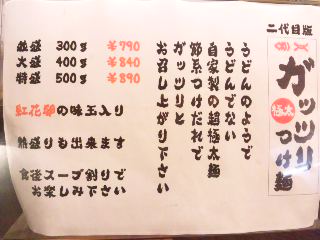 二代目版
ガッツリ
極太
つけ麺
うどんのようで
うどんでない
自家製の超極太麺
節系つけだれで
ガッツリと
お召し上がり下さい
並盛 300g ￥790
大盛 400g ￥840
特盛 500g ￥890
紅花卵の味玉入り
熱盛りも出来ます
食後スープ割りで
お楽しみ下さい